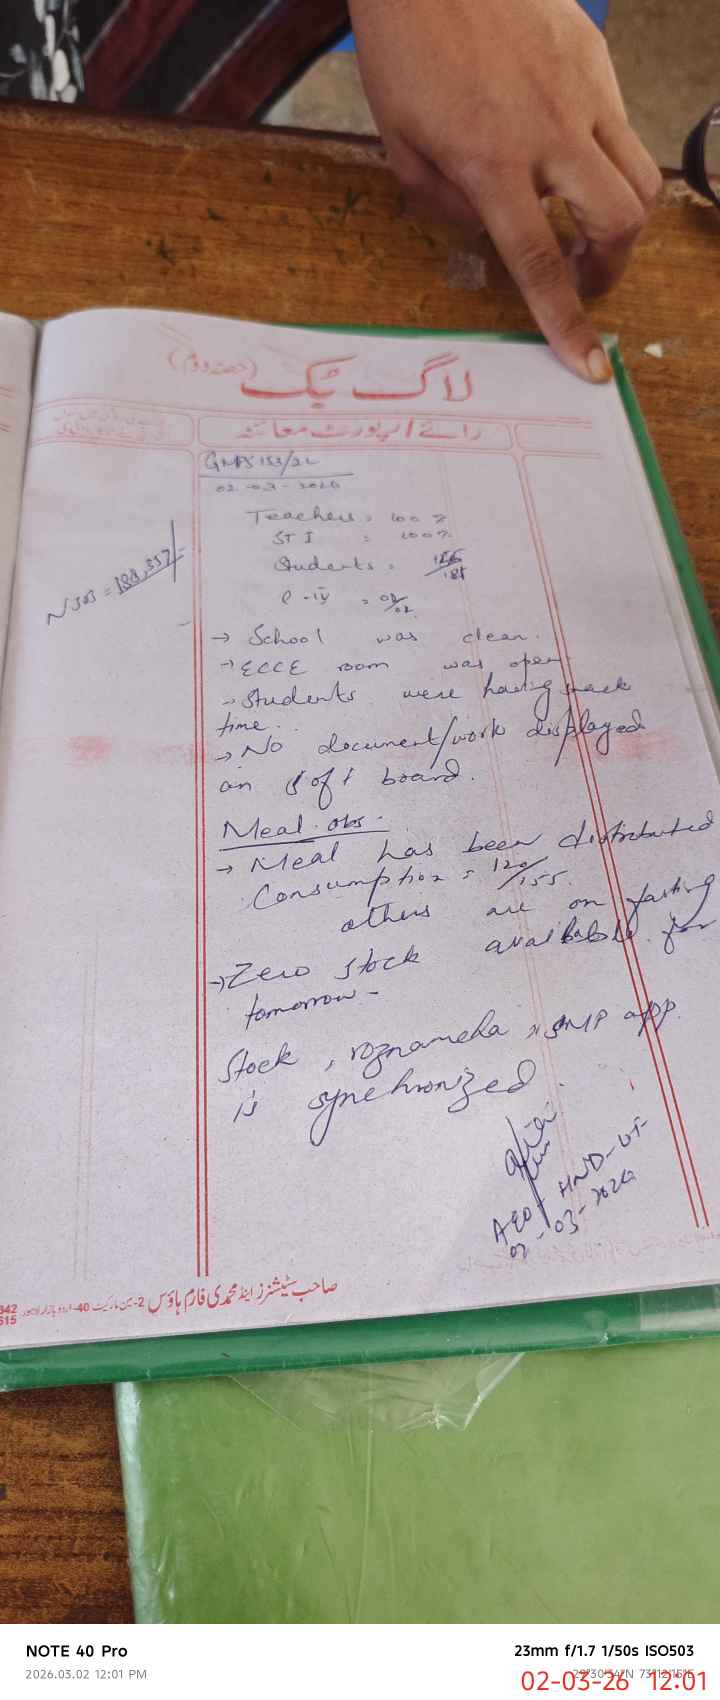 لاگ بک (حصہ دوم)
رائے / رپورٹ معائنہ
GMPS 153/2L
02-03-2026
Teachers = 100 %
STI = 100 %
Students = 155/181
C-IV = 02/02
NSB = 188,357/-
→ School was clean.
→ ECCE room was open
→ Students were having snack
time.
→ No document/work displayed
on soft board.
Meal obs.
→ Meal has been distributed
Consumption = 120/155.
others are on fasting
→ Zero stock available for
tomorrow -
Stock, roznamcha, SMP app.
is synchronized.
AEO
02-03-2026
صاحب سٹیشنرز اینڈ محمدی فارم ہاؤس 2-مین مارکیٹ 40-اردو بازار لاہور
342
615
NOTE 40 Pro
2026.03.02 12:01 PM
23mm f/1.7 1/50s ISO503
02-03-26 12:01